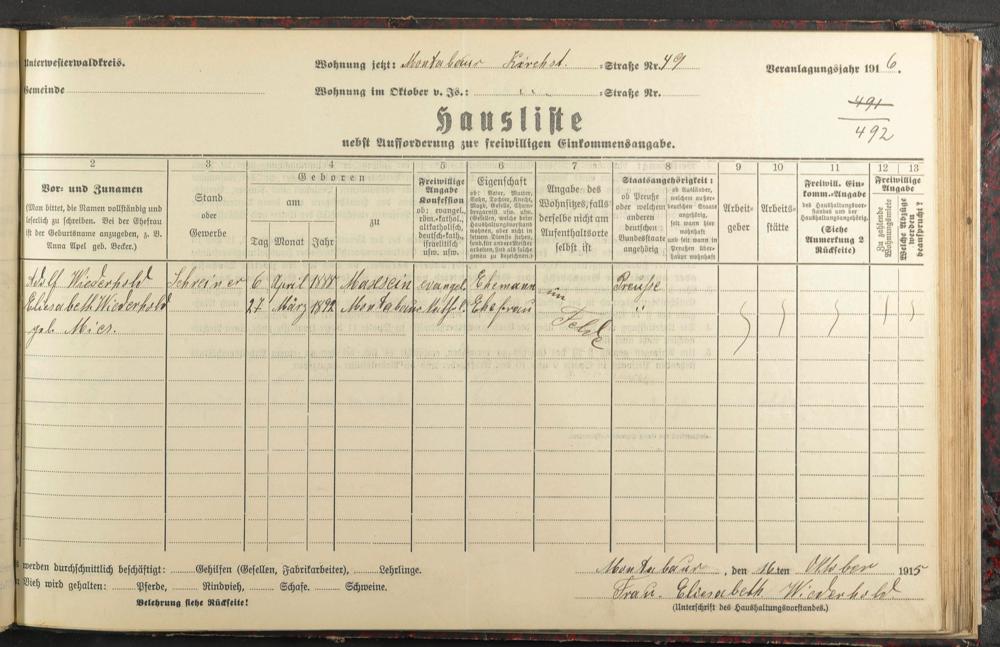 Unterwesterwaldkreis.
Wohnung jetzt: Montabaur Kirchst. -Straße Nr. 49
Veranlagungsjahr 1916.
Gemeinde
Wohnung im Oktober v. Js.: -Straße Nr.
491
492
Hausliste
nebst Aufforderung zur freiwilligen Einkommensangabe.
2 3 4 5 6 7 8 9 10 11 12 13
Vor- und Zunamen
(Man bittet, die Namen vollständig und
leserlich zu schreiben. Bei der Ehefrau
ist der Geburtsname anzugeben, z. B.
Anna Apel geb. Becker.)
Stand
oder
Gewerbe
Geboren
am
zu
Tag Monat Jahr
Freiwillige
Angabe
Konfession
ob: evangel.,
röm.-kathol.,
altkatholisch,
deutsch-kath.,
israelitisch
usw. usw.
Eigenschaft
ob: Vater, Mutter,
Sohn, Tochter, Knecht,
Magd, Geselle,
Angabe des
Wohnsitzes, falls
derselbe nicht am
Aufenthaltsorte
selbst ist
Staatsangehörigkeit:
ob Preuße
oder welchem
anderen
deutschen
Bundesstaate
angehörig
ob Ausländer,
welchem außer-
deutschen Staate
angehörig,
seit wann hier
wohnhaft
und seit wann in
Preußen über-
haupt wohnhaft
Arbeit-
geber
Arbeits-
stätte
Freiwill. Ein-
komm.-Angabe
des Haushaltungsvor-
standes und der
Haushaltungsangehörig.
(Siehe
Anmerkung 2
Rückseite)
Freiwillige
Angabe
Zu zahlende
Wohnungsmiete
Welche Abzüge
werden
beansprucht?
Adolf Wiederhold Schreiner 6 April Maxsein evangel. Ehemann im Preuße
Elisabeth Wiederhold 27 März 1892 Montabaur Kath. Ehefrau Felde "
geb. Mies.
werden durchschnittlich beschäftigt: Gehilfen (Gesellen, Fabrikarbeiter), Lehrlinge.
Vieh wird gehalten: Pferde, Rindvieh, Schafe. Schweine.
Belehrung siehe Rückseite!
Montabaur, den 16ten Oktober 1915
Frau. Elisabeth Wiederhold
(Unterschrift des Haushaltungsvorstandes.)